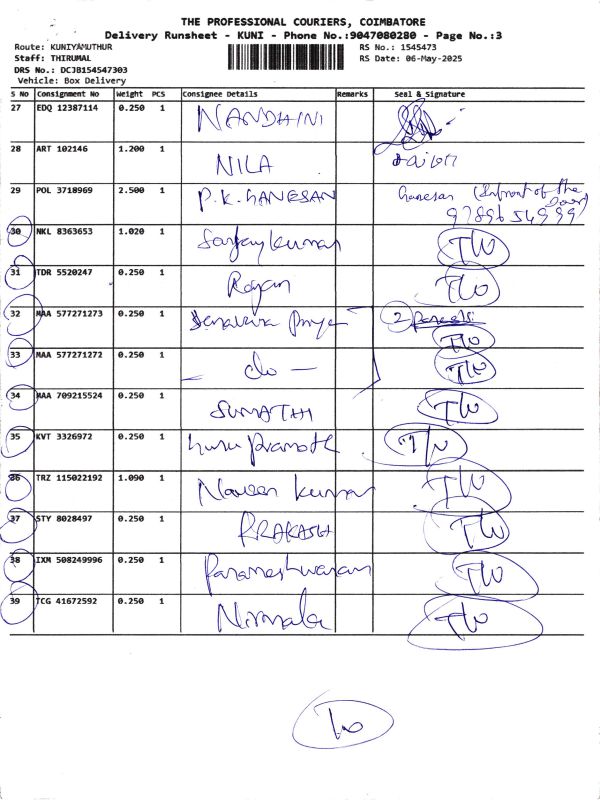 THE PROFESSIONAL COURIERS, COIMBATORE
Delivery Runsheet - KUNI - Phone No.:9047080280 - Page No.:3
Route: KUNIYAMUTHUR RS No.: 1545473
Staff: THIRUMAL RS Date: 06-May-2025
DRS No.: DCJB154547303
Vehicle: Box Delivery
S No Consignment No Weight PCS Consignee Details Remarks Seal & Signature
27 EDQ 12387114 0.250 1 NANDHINI
28 ART 102146 1.200 1 NILA
29 POL 3718969 2.500 1 P.K. GANESAN Ganesan (Infront of the Door)
9789654999
30 NKL 8363653 1.020 1 Sanjaykumar T/O
31 TDR 5520247 0.250 1 Rajan T/O
32 MAA 577271273 0.250 1 Priya 2 Parcels
T/O
33 MAA 577271272 0.250 1 - do - T/O
34 MAA 709215524 0.250 1 SUMATHI T/O
35 KVT 3326972 0.250 1 Guru Pramoth T/O
36 TRZ 115022192 1.090 1 Naveen kumar T/O
37 STY 8028497 0.250 1 PRAKASH T/O
38 IXM 508249996 0.250 1 Parameshwaran T/O
39 TCG 41672592 0.250 1 Nirmala T/O
T/O